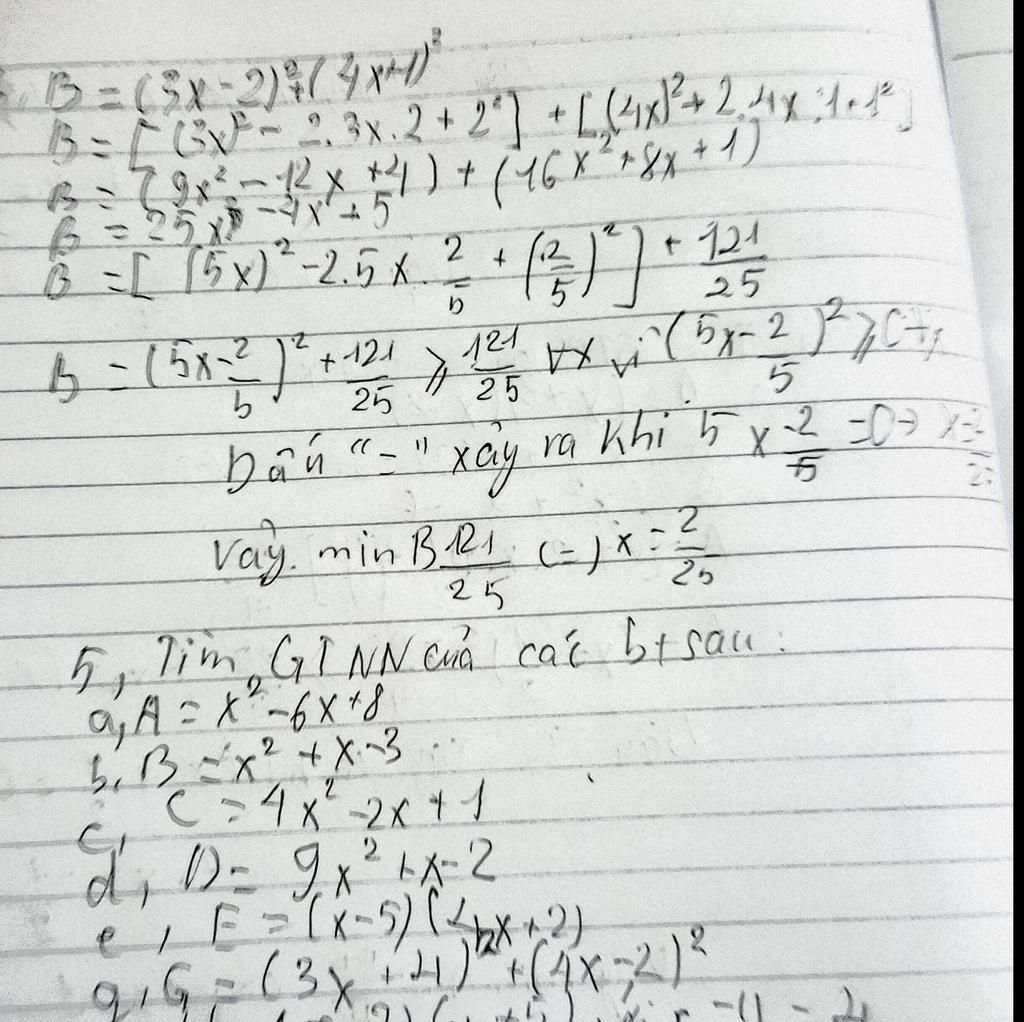 B = (3x - 2)² + (4x+1)²
B = [(3x)² - 2.3x.2 + 2²] + [(4x)² + 2.4x.1+1²]
B = (9x² - 12x + 4) + (16x² + 8x + 1)
B = 25x² - 4x + 5
B = [(5x)² - 2.5x.2/5 + (2/5)²] + 121/25
B = (5x - 2/5)² + 121/25 ⩾ 121/25 ∀x vì (5x - 2/5)² ⩾
Dấu "=" xảy ra khi 5x - 2/5 = 0 → x =
Vậy. min B 121/25 (=) x = 2/25
5, Tìm GTNN của các bt sau:
a, A = x² - 6x + 8
b, B = x² + x - 3
c, C = 4x² - 2x + 1
d, D = 9x² + x - 2
e, E = (x - 5)( x + 2)
g, G = (3x + 4)² + (4x - 2)²